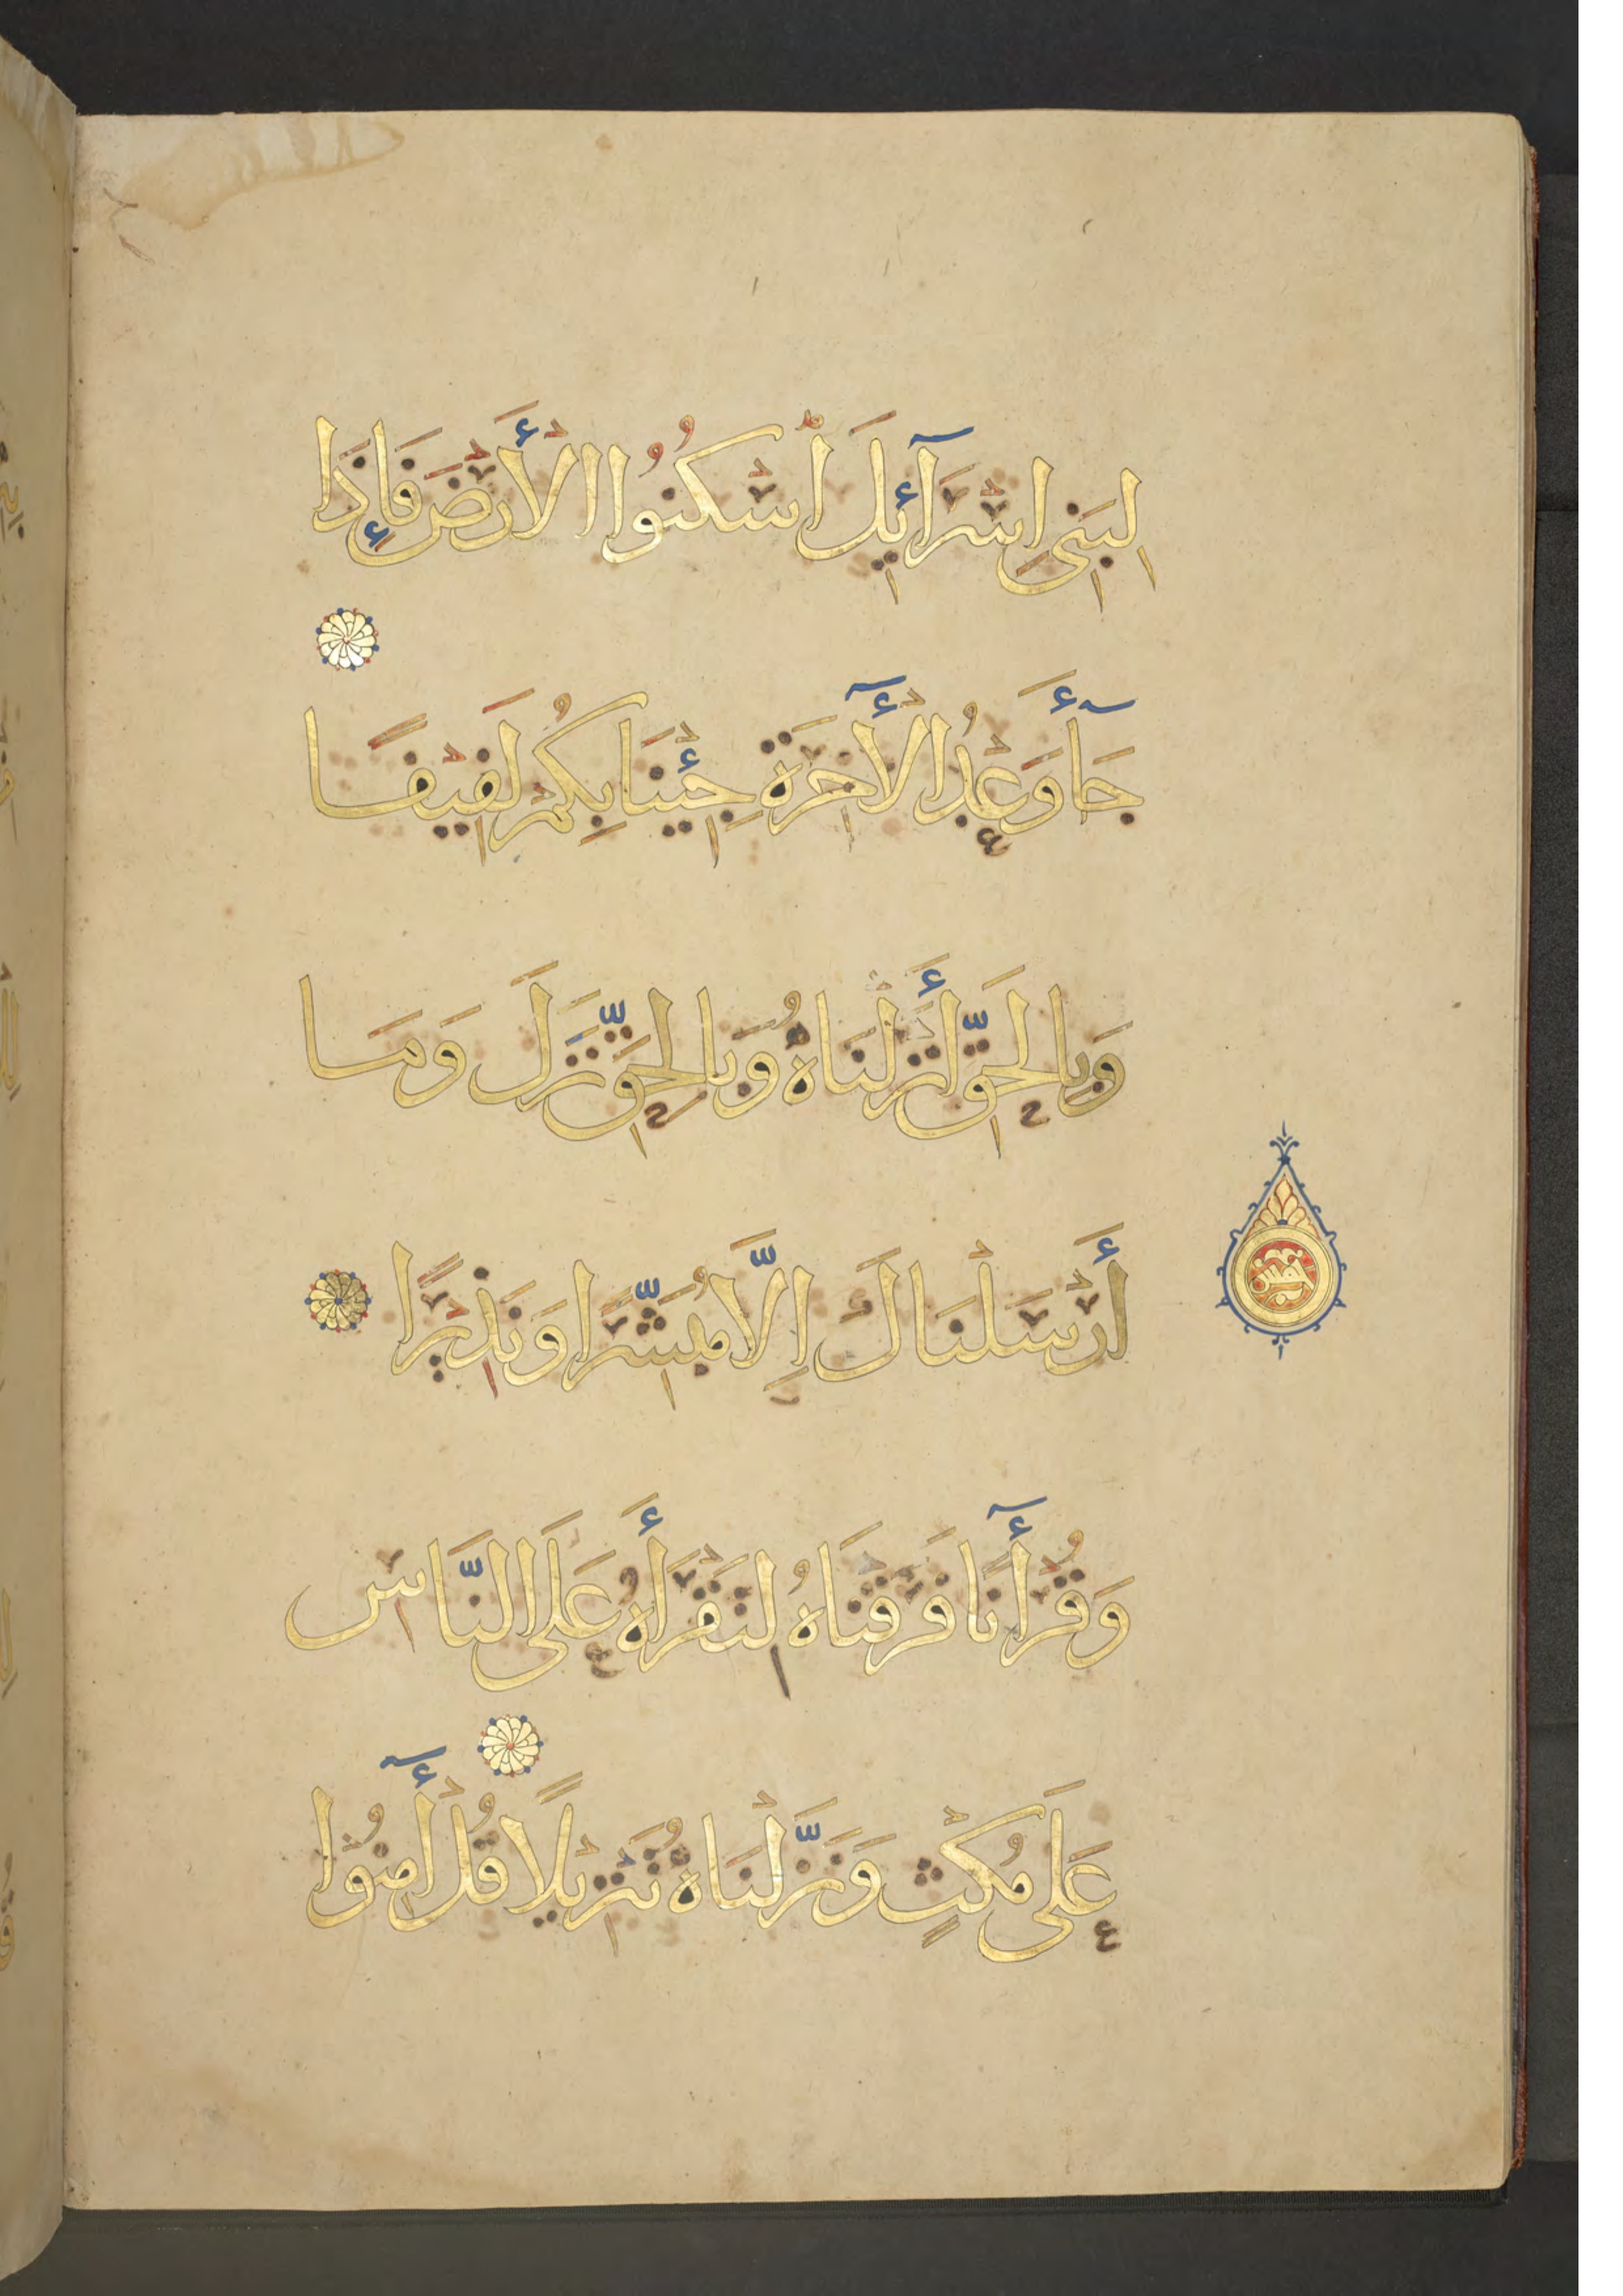 لِبَنِي إِسْرَآئِيلَ اسْكُنُوا الْأَرْضَ فَإِذَا
جَآءَ وَعْدُ الْأٓخِرَةِ جِئْنَا بِكُمْ لَفِيفًا
وَبِالْحَقِّ أَنْزَلْنَاهُ وَبِالْحَقِّ نَزَلَ وَمَا
أَرْسَلْنَاكَ إِلَّا مُبَشِّرًا وَنَذِيرًا
وَقُرْأٓنًا فَرَقْنَاهُ لِتَقْرَأَهُ عَلَى النَّاسِ
عَلَى مُكْثٍ وَنَزَّلْنَاهُ تَنْزِيلًا قُلْ أٓمِنُوا